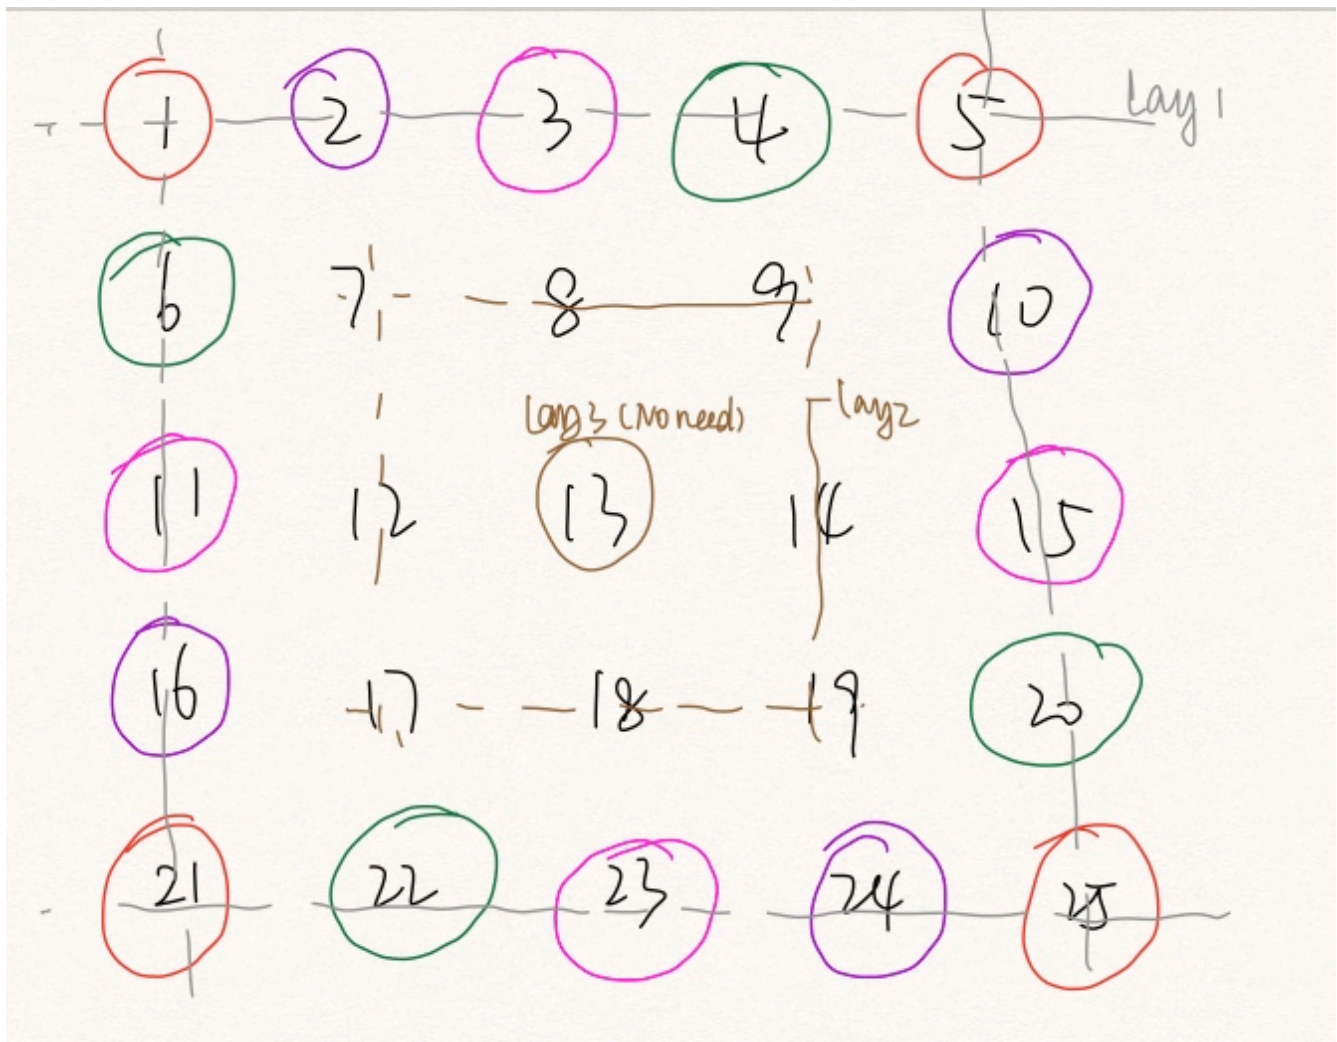 1 2 3 4 5 lay 1
6 7 8 9 10
lay3 (No need) lay2
11 12 13 14 15
16 17 18 19 20
21 22 23 24 25